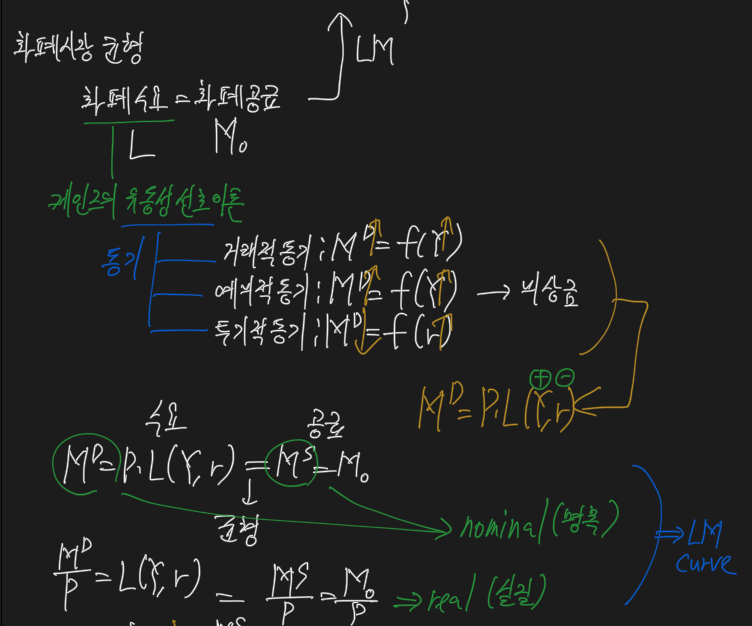 화폐시장 균형
LM
화폐수요 = 화폐공급
L M₀
케인즈의 유동성선호이론
동기
거래적동기 : M^D↑ = f(Y↑)
예비적동기 : M^D↑ = f(Y↑) → 비상금
투기적동기 : M^D↓ = f(r↑)
⊕ ⊖
M^D = P·L(Y, r)
수요 공급
M^D = P·L(Y, r) = M^S = M₀
↓
균형
nominal (명목)
⇒ LM curve
M^D/P = L(Y, r) = M^S/P = M₀/P ⇒ real (실질)